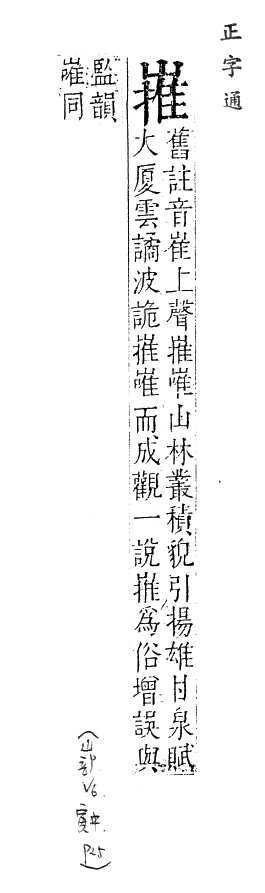 正字通
嶊
舊註音嶊上聲嶊嶉山林叢積貌引揚雄甘泉賦
大厦雲譎波詭嶊嶉而成觀一說嶊爲俗增誤與
監韻
嶉同
(山部 V6 寅中 P25)